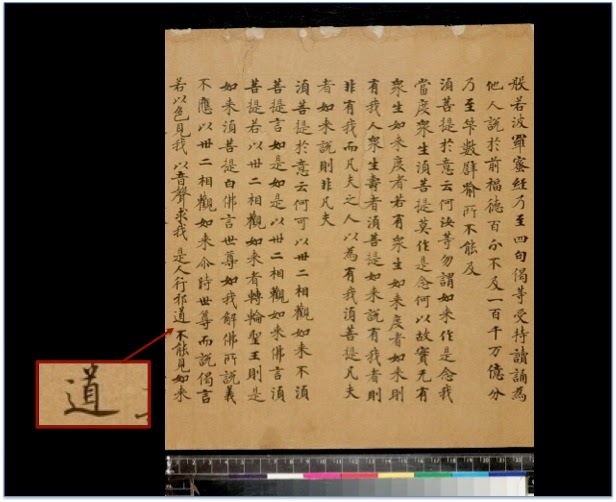 般若波羅蜜經乃至四句偈等受持讀誦為
他人說於前福德百分不及一百千万億分
乃至筭數譬喻所不能及
須菩提於意云何汝等勿謂如来作是念我
當度衆生須菩提莫作是念何以故實无有
衆生如来度者若有衆生如来度者如来則
有我人衆生壽者須菩提如来說有我者則
非有我而凡夫之人以為有我須菩提凡夫
者如来說則非凡夫
須菩提於意云何可以卅二相觀如来不須
菩提言如是如是以卅二相觀如来佛言須
菩提若以卅二相觀如来者轉輪聖王則是
如来須菩提白佛言世尊如我解佛所說義
不應以卅二相觀如来尒時世尊而說偈言
若以色見我 以音聲求我 是人行邪道 不能見如来
道